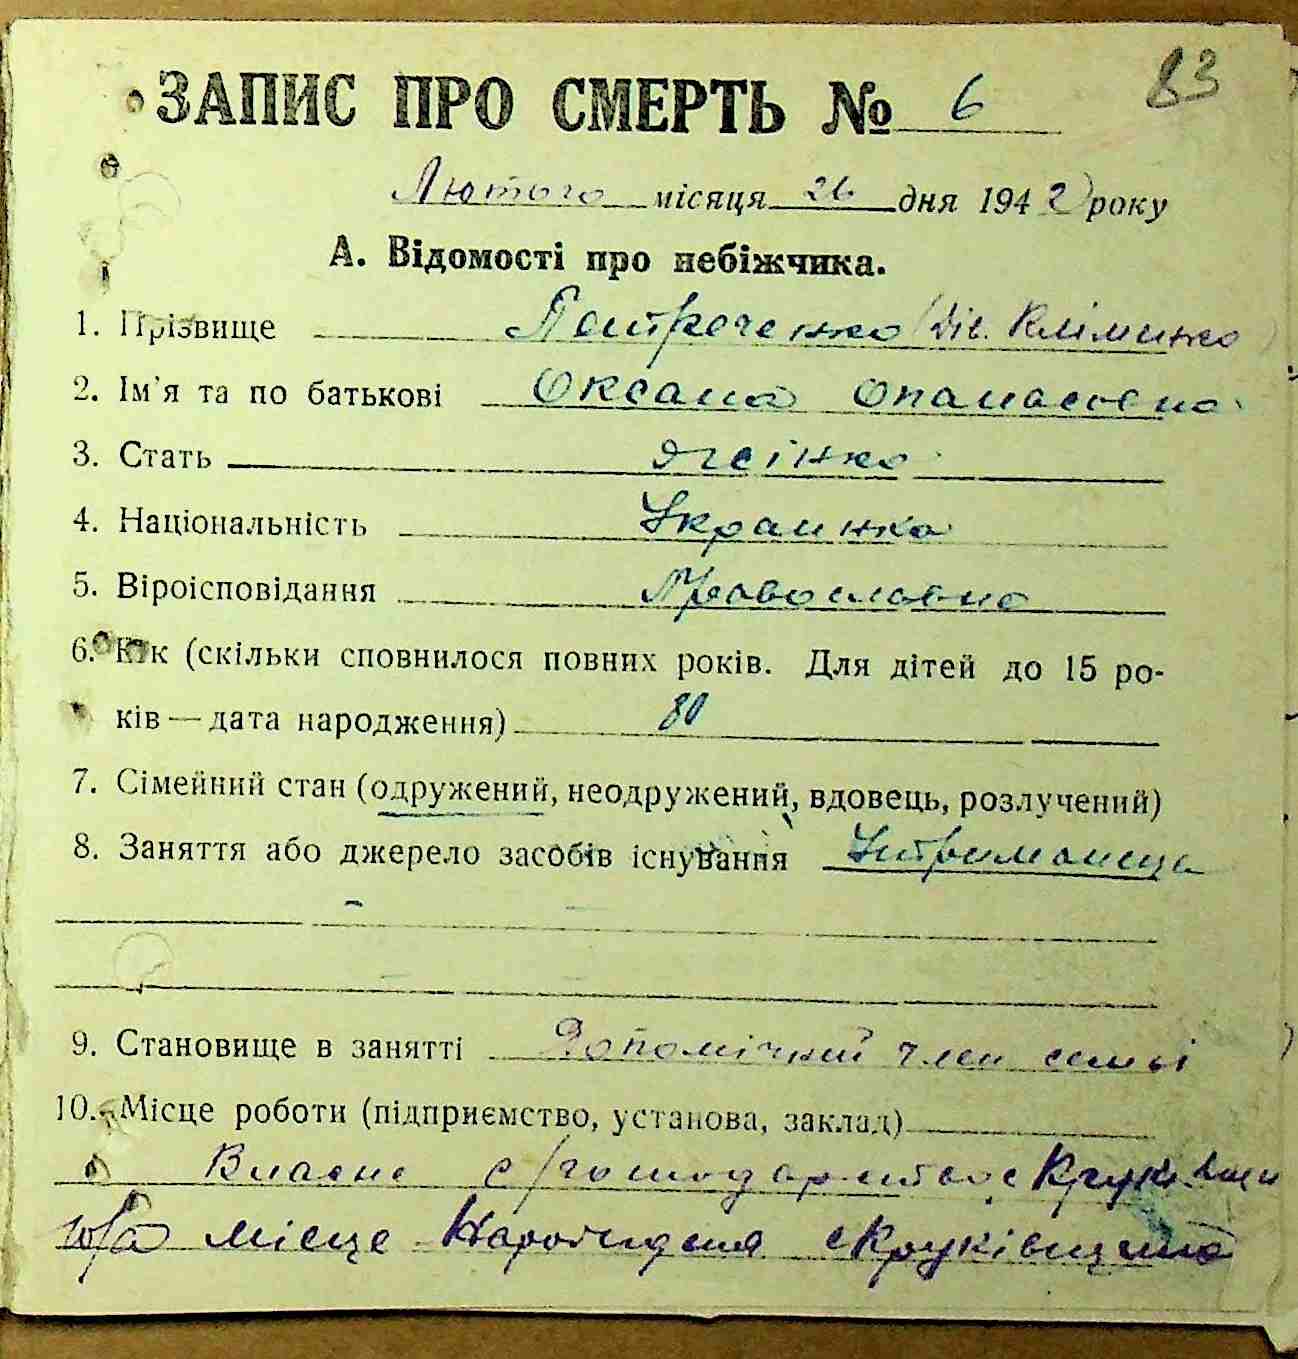 83
ЗАПИС ПРО СМЕРТЬ № 6
Лютого місяця 26 дня 1942 року
А. Відомості про небіжчика.
1. Прізвище Петреченко (Дів. Кліменко)
2. Ім'я та по батькові Оксана Опанасовна
3. Стать жсінка
4. Національність Українка
5. Віроісповідання Православна
6. Вік (скільки сповнилося повних років. Для дітей до 15 ро-
ків — дата народження) 80
7. Сімейний стан (одружений, неодружений, вдовець, розлучений)
8. Заняття або джерело засобів існування Утриманець
9. Становище в занятті Допомічний член семьі
10. Місце роботи (підприємство, установа, заклад)
Власне с/господарство с
10/а місце Народження с Круківщина